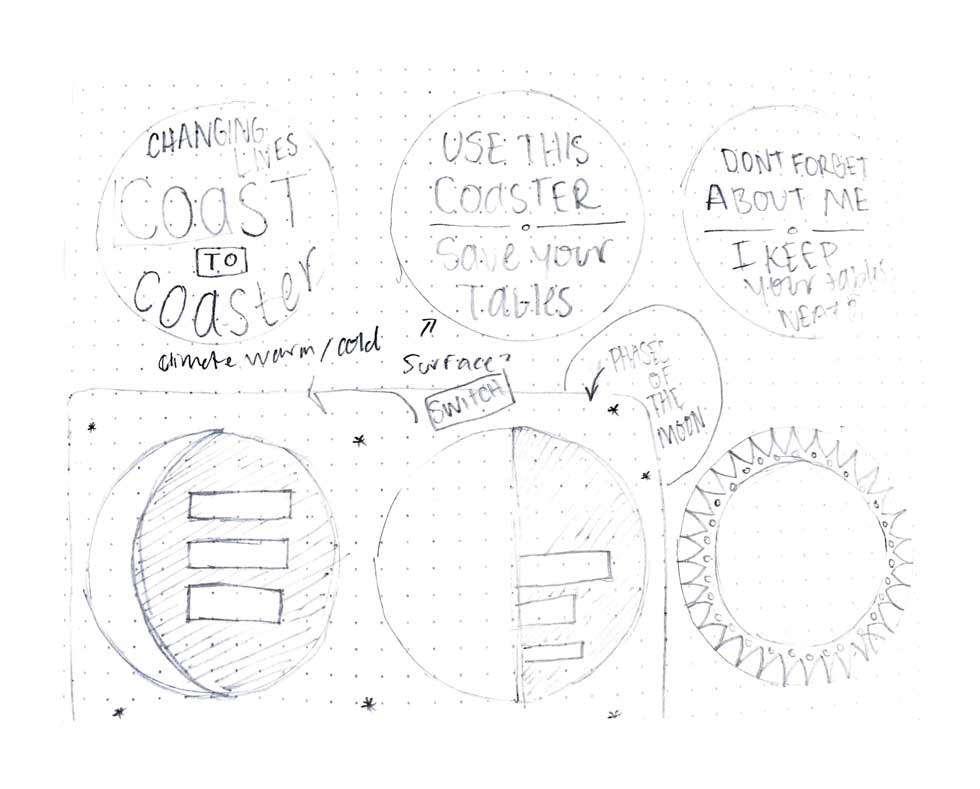 CHANGING
LIVES
COAST
TO
Coaster
USE THIS
COASTER
Save your
TABLES
DONT FORGET
ABOUT ME
I KEEP
your tables
NEAT
climate warm/cold
Surface?
SWITCH
PHASES
OF
THE
MOON